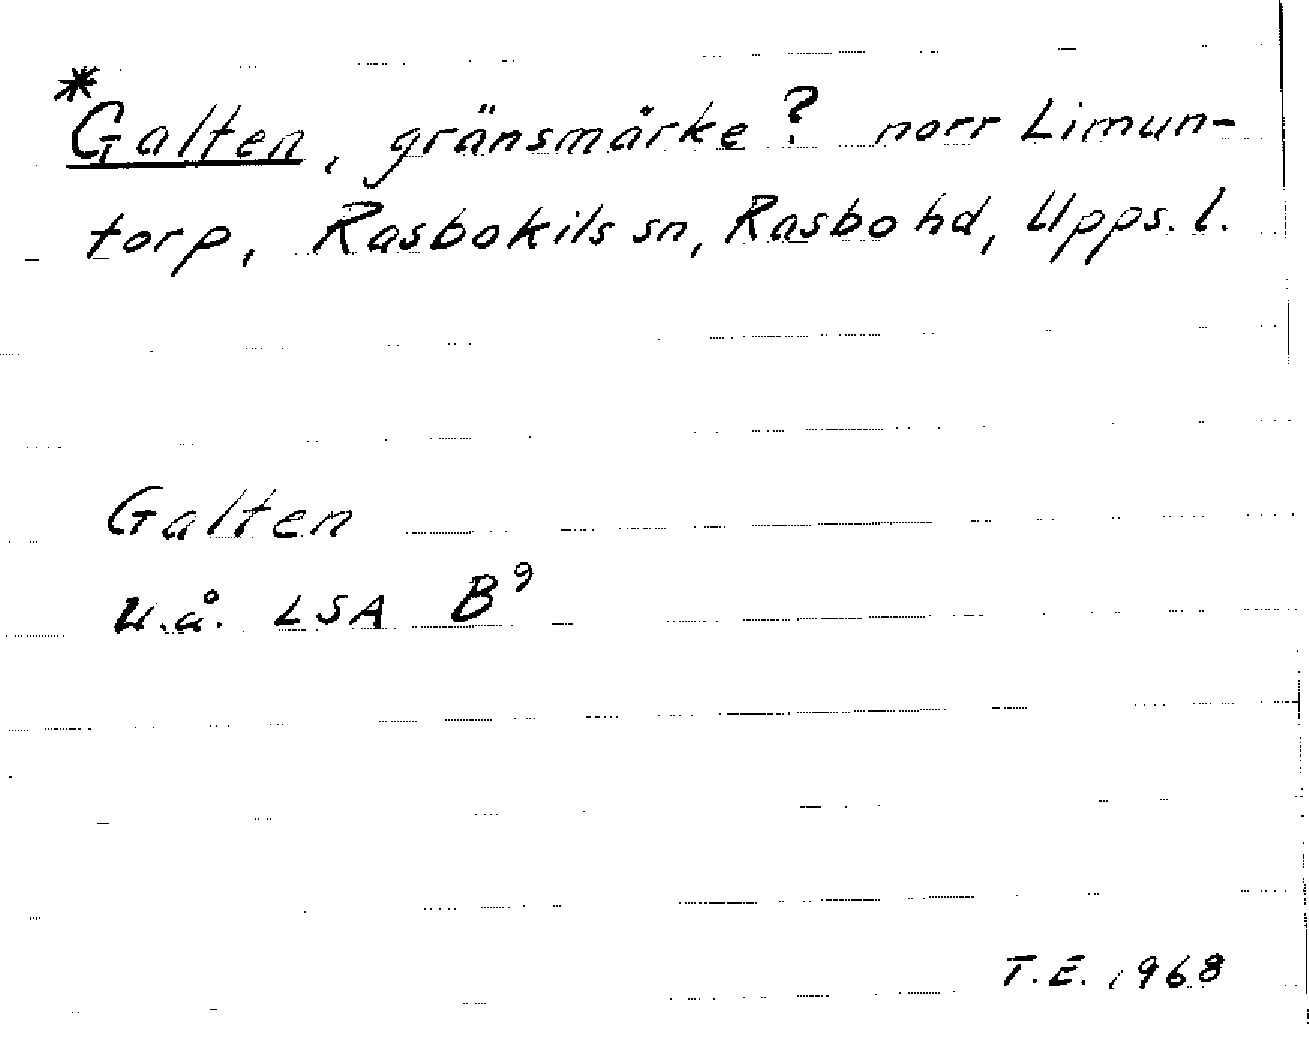 *Galten, gränsmärke? norr Limun-
torp, Rasbokils sn, Rasbo hd, Upps. l.
Galten
u.å. LSA B⁹
T.E. 1968